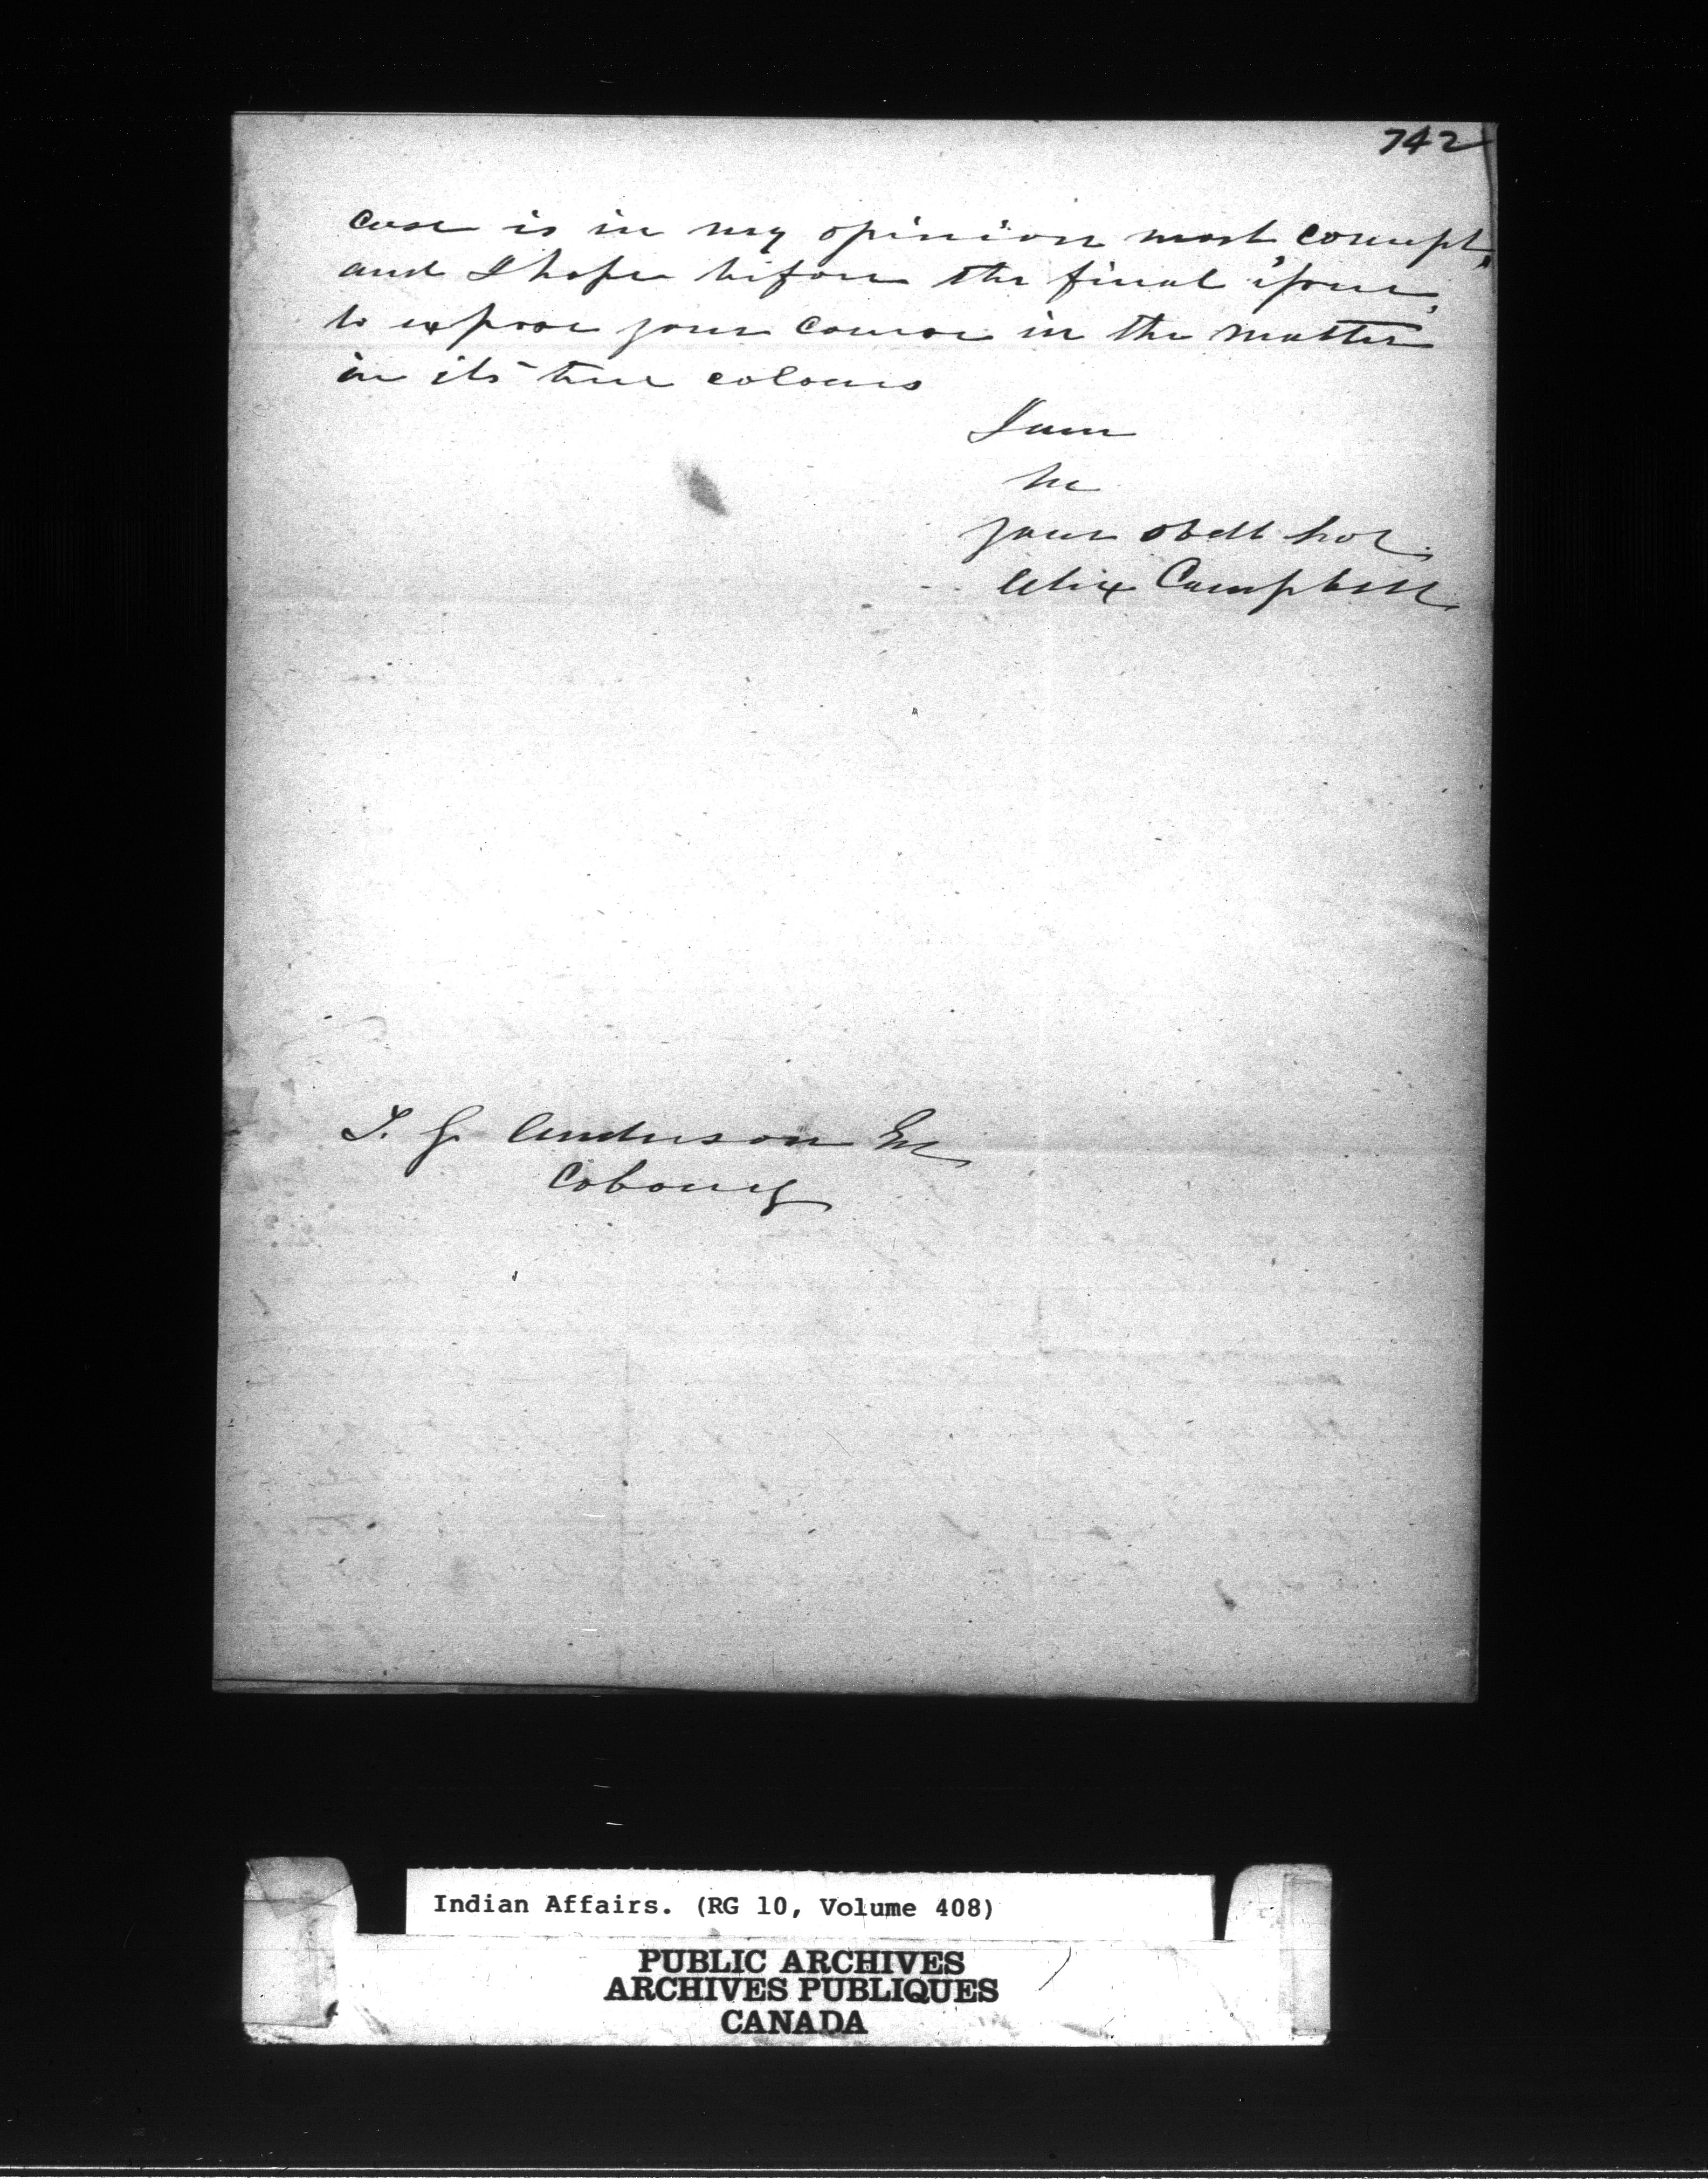 742
case is in my opinion most corrupt,
and I hope before the final issue,
to expose your course in the matter
in its true colours
I am
Sir
your obdt Svt
Alex Campbell
T. G. Anderson Esq
Cobourg
Indian Affairs. (RG 10, Volume 408)
PUBLIC ARCHIVES
ARCHIVES PUBLIQUES
CANADA